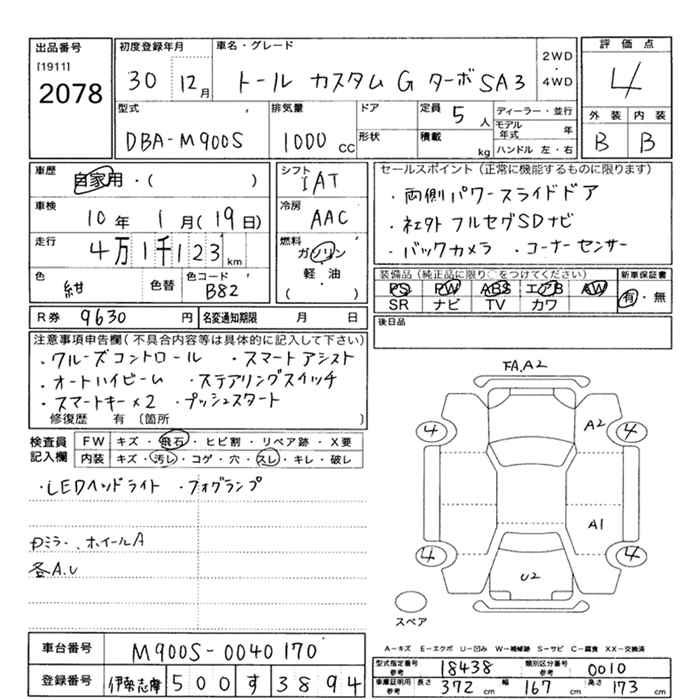 出品番号
[1911]
2078
初度登録年月
30 12月
車名・グレード
トール カスタム G ターボ SA3
2WD
・
4WD
評価点
4
外装 内装
B B
型式
DBA-M900S
排気量
1000 CC
ドア
形状
定員 5人
積載 kg
ディーラー・並行
モデル年式 年
ハンドル 左・右
車歴
自家用・( )
車検
10年 1月(19日)
走行
4万1千123km
色
紺
色替
色コード
B82
シフト
IAT
冷房
AAC
燃料
ガソリン
軽・油
( )
セールスポイント(正常に機能するものに限ります)
・両側パワースライドドア
・社外フルセグSDナビ
・バックカメラ ・コーナーセンサー
装備品(純正品に限り○をつけてください)
PS PW ABS エアB AW
SR ナビ TV カワ
新車保証書
有・無
R券 9630円
名変通知期限 月 日
後日品
注意事項申告欄(不具合内容等は具体的に記入して下さい)
・クルーズコントロール ・スマートアシスト
・オートハイビーム ・ステアリングスイッチ
・スマートキー×2 ・プッシュスタート
修復歴 有(箇所 )
検査員記入欄
FW キズ・飛石・ヒビ割・リペア跡・X要
内装 キズ・汚レ・コゲ・穴・スレ・キレ・破レ
・LEDヘッドライト ・フォグランプ
ミラー、ホイールA
A.U
FA,A2
A2
4 4
A1
4 4
U2
スペア
A-キズ E-エクボ U-凹み W-補修跡 S-サビ C-腐食 XX-交換済
車台番号 M900S-0040170
登録番号 伊勢志摩 500 す 3894
型式指定番号 参考 18438
類別区分番号 参考 0010
車庫証明用 参考 長さ 372cm 幅 167cm 高さ 173cm